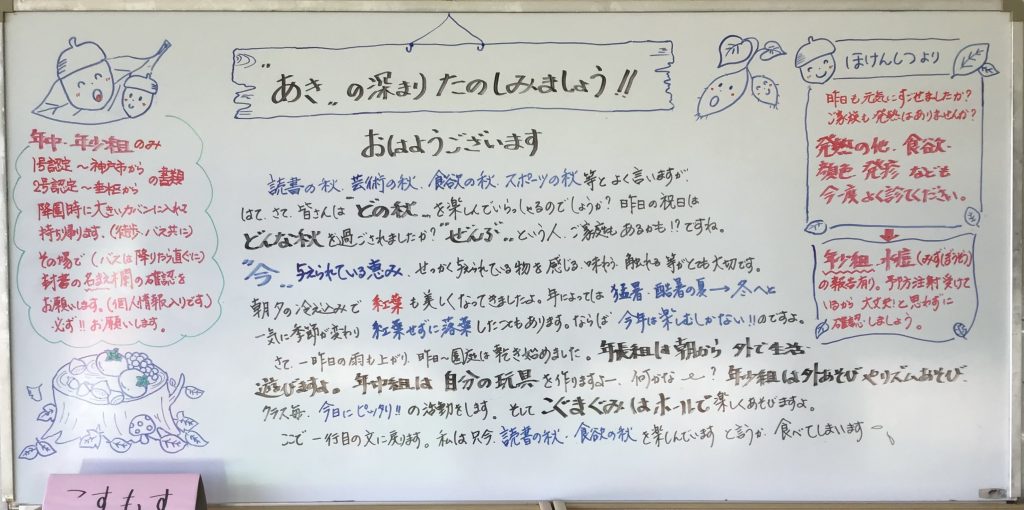 "あき"の深まり たのしみましょう!!
おはようございます
読書の秋、芸術の秋、食欲の秋、スポーツの秋 等と よく言いますが、
はて、さて、皆さんは"どの秋"を楽しんでいらっしゃるのでしょうか？昨日の祝日は
どんな秋を過ごされましたか？"ぜんぶ"という人、ご家庭もあるかも!?ですね。
"今"与えられている恵み、せっかく与えられている物を感じる、味わう、触れる等がとても大切です。
朝夕の冷え込みで 紅葉も美しくなってきましたよ。年によっては 猛暑・酷暑の夏→冬へと
一気に季節が変わり 紅葉せずに落葉したこともあります。ならば 今年は楽しむしかない!!のですよ。
さて、一昨日の雨も上がり、昨日〜園庭は乾き始めました。年長組は朝から 外で生活・
遊びますよ。年中組は 自分の玩具を作りますよー、何かな〜？年少組は外あそびやリズムあそび、
クラス毎、今日にピッタリ!!の活動をします。そして こぐまぐみはホールで楽しくあそびますよ。
ここで一行目の文に戻ります。私は只今、読書の秋・食欲の秋を楽しんでいますと言うか、食べてしまいます〜。
年中・年少組のみ
1号認定〜神戸市から
2号認定〜垂水区から
の書類
降園時に大きいカバンに入れて
持ち帰ります。(徒歩、バス共に)
その場で(バスは降りたら直ぐに)
封書の名前欄の確認を
お願いします。(個人情報入りです。)
必ず!!お願いします。
ほけんしつより
昨日も元気にすごせましたか？
ご家族も発熱はありませんか？
発熱の他、食欲・
顔色・発疹なども
今一度よく診てください。
年少組 水痘(みずぼうそう)
の報告有り。予防注射受けて
いるから大丈夫！と思わずに
確認しましょう。
こすもす